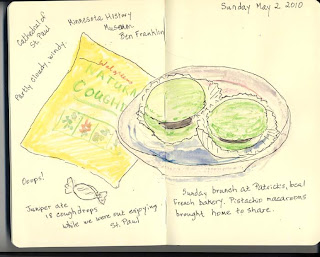 Cathedral of
St. Paul
Partly cloudy, windy.
Minnesota History
Museum.
Ben Franklin
Sunday May 2, 2010
NATURA
COUGH
Oops!
Juniper ate
18 cough drops
while we were out enjoying
St. Paul
Sunday brunch at Patrick's, local
French bakery. Pistachio macaroons
brought home to share.